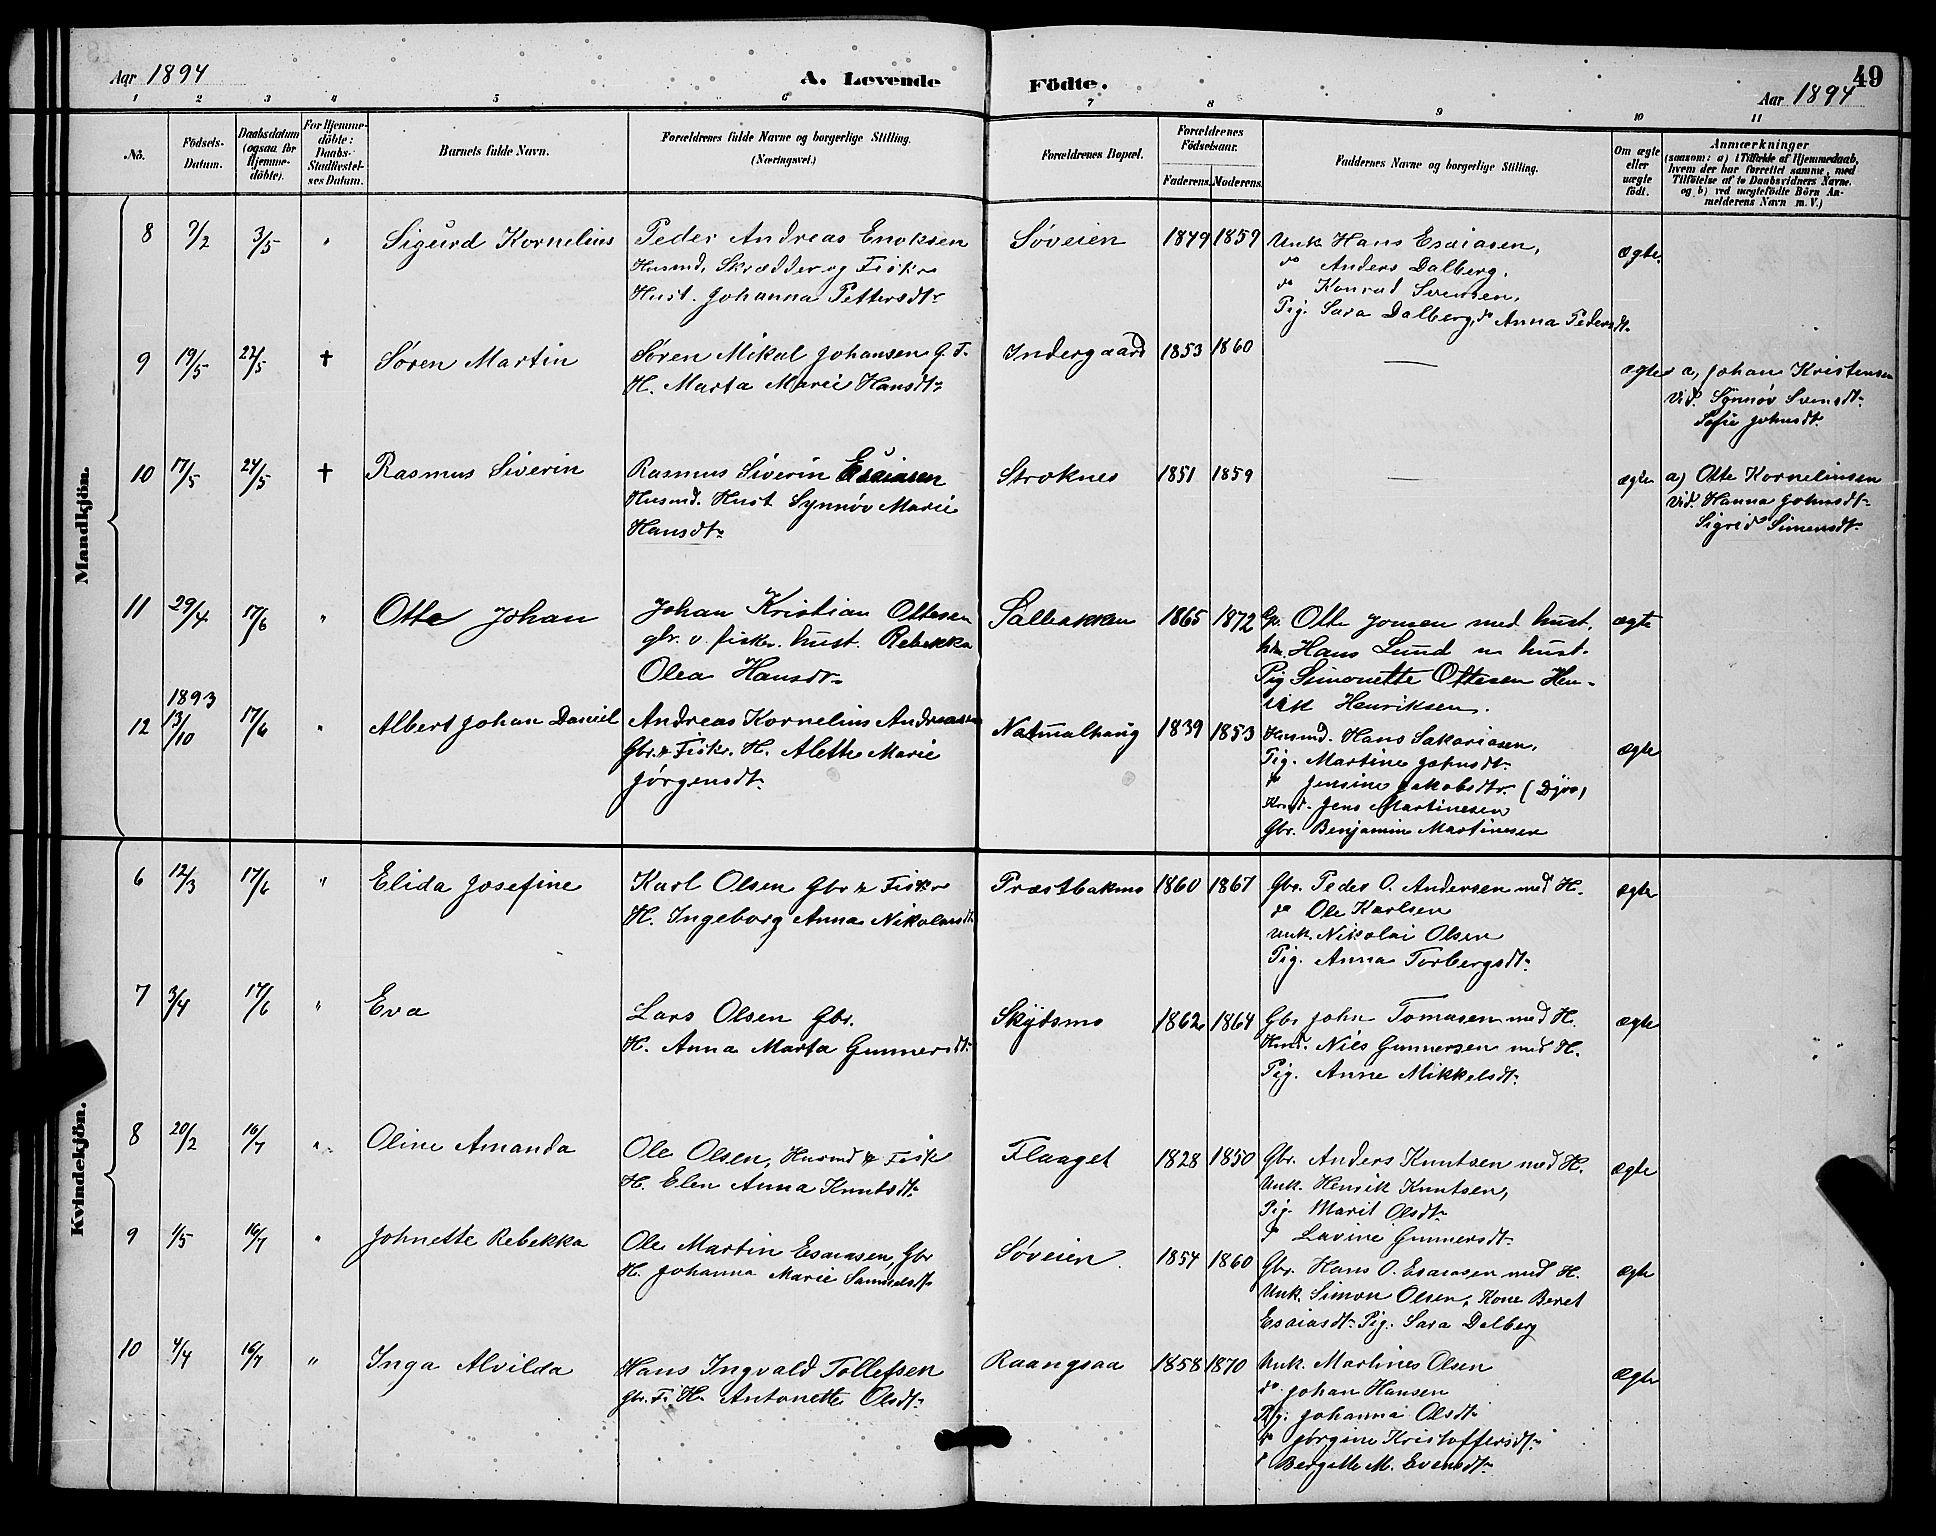 Aar 1894
A. Levende
Födte.
49
Aar 1894
1 2 3 4 5 6 7 8 9 10 11
No.
Födsels-Datum.
Daabsdatum (ogsaa for Hjemme-döbte).
For Hjemme-döbte: Daabs-Stadfæstel-ses Datum.
Barnets fulde Navn.
Forældrenes fulde Navne og borgerlige Stilling.
(Næringsvei.)
Forældrenes Bopæl.
Forældrenes Födselsaar.
Faderens. Moderens.
Faddernes Navne og borgerlige Stilling.
Om ægte eller uægte födt.
Anmærkninger
(saasom: a) i Tilfælde af Hjemmedaab,
hvem der har forrettet samme, med
Tilföielse af to Daabsvidners Navne.
og b) ved uægtefödte Börn An-
melderens Navn m. V.)
Mandkjön.
8 9/2 3/5 " Sigurd Kornelius
Peder Andreas Enoksen
Husmd, Skrædder og Fisker
Hust. Johanna Pettersdtr
Søveien 1849 1859
Unk Hans Esaiasen,
do Anders Dalberg.
do Konrad Svensen,
Pig. Sara Dalberg, do Anna Pedersdt.
ægte.
9 19/5 22/5 † Søren Martin
Søren Mikal Johansen G. F.
H. Marta Marie Hansdtr
Indergaard 1853 1860
—
ægte
a, Johan Kristensen
Vid. Synnøv Svensdtr
Sofie Johnsdt.
10 17/5 24/5 † Rasmus Siverin
Rasmus Siverin Esaiasen
Husmd. Hust Synnøv Marie
Hansdtr
Stroknes 1851 1859
—
ægte
a) Otte Kornelinsen
Vid. Hanna Johnsdtr
Sigrid Simensdtr
11 29/4 17/6 " Otte Johan
Johan Kristian Ottesen
gbr. o. fisker. hust. Rebekka
Olea Hansdtr
Salbakken 1865 1872
Gbr. Otte Jonsen med hust.
hm. Hans Lund m hust.
Pig Simonette Ottesen Hen-
rik Henriksen.
ægte
1893
12 13/10 17/6 " Albert Johan Daniel
Andreas Kornelius Andreasen
Gbr. & Fisker. H. Alette Marie
Jørgensdtr
Natmalhaug 1839 1853
Husmd. Hans Sakariasen,
Pig. Martine Johnsdtr
do Jensine Jakobsdtr. (Djøv)
Jens Martinesen
Gbr. Benjamin Martinesen
ægte
Kvindekjön.
6 12/3 17/6 " Elida Josefine
Karl Olsen Gbr & Fisker
H. Ingeborg Anna Nikolaisdt
Præstbakmo 1860 1867
Gbr. Peder O. Andersen med H.
do Ole Karlsen
Unk. Nikolai Olsen
Pig. Anna Torbergsdtr
ægte
7 3/4 17/6 " Eva
Lars Olsen Gbr.
H. Anna Marta Gunnersdtr
Skydsmo 1862 1864
Gbr John Tomasen med H.
Husd. Nils Gunnersen med H.
Pig. Anne Mikkelsdtr
ægte
8 20/2 16/7 " Oline Amanda
Ole Olsen, Husmd & Fisk
H. Elen Anna Knutsdtr
Flaaget 1828 1850
Gbr. Anders Knutsen med H.
Unk. Henrik Knutsen,
Pig. Marit Olsdtr
do Lavine Gunnersdtr
ægte
9 1/5 16/7 " Johnette Rebekka
Ole Martin Esaiasen, Gbr
H. Johanna Marie Samuelsdtr
Søveien 1854 1860
Gbr. Hans O. Esaiasen med H.
Unk. Simon Olsen, Kone Beret
Esaiasdtr Pig. Sara Dalberg
ægte
10 4/4 16/7 " Inga Alvilda
Hans Ingvald Tollefsen
Gbr. F. H. Antonette Olsdtr
Raangsaa 1858 1870
Unk. Martines Olsen
do Johan Hansen
Pig. Johanna Olsdtr
do Jørgine Kristoffersdtr
do Bergitte M. Evensdtr
ægte